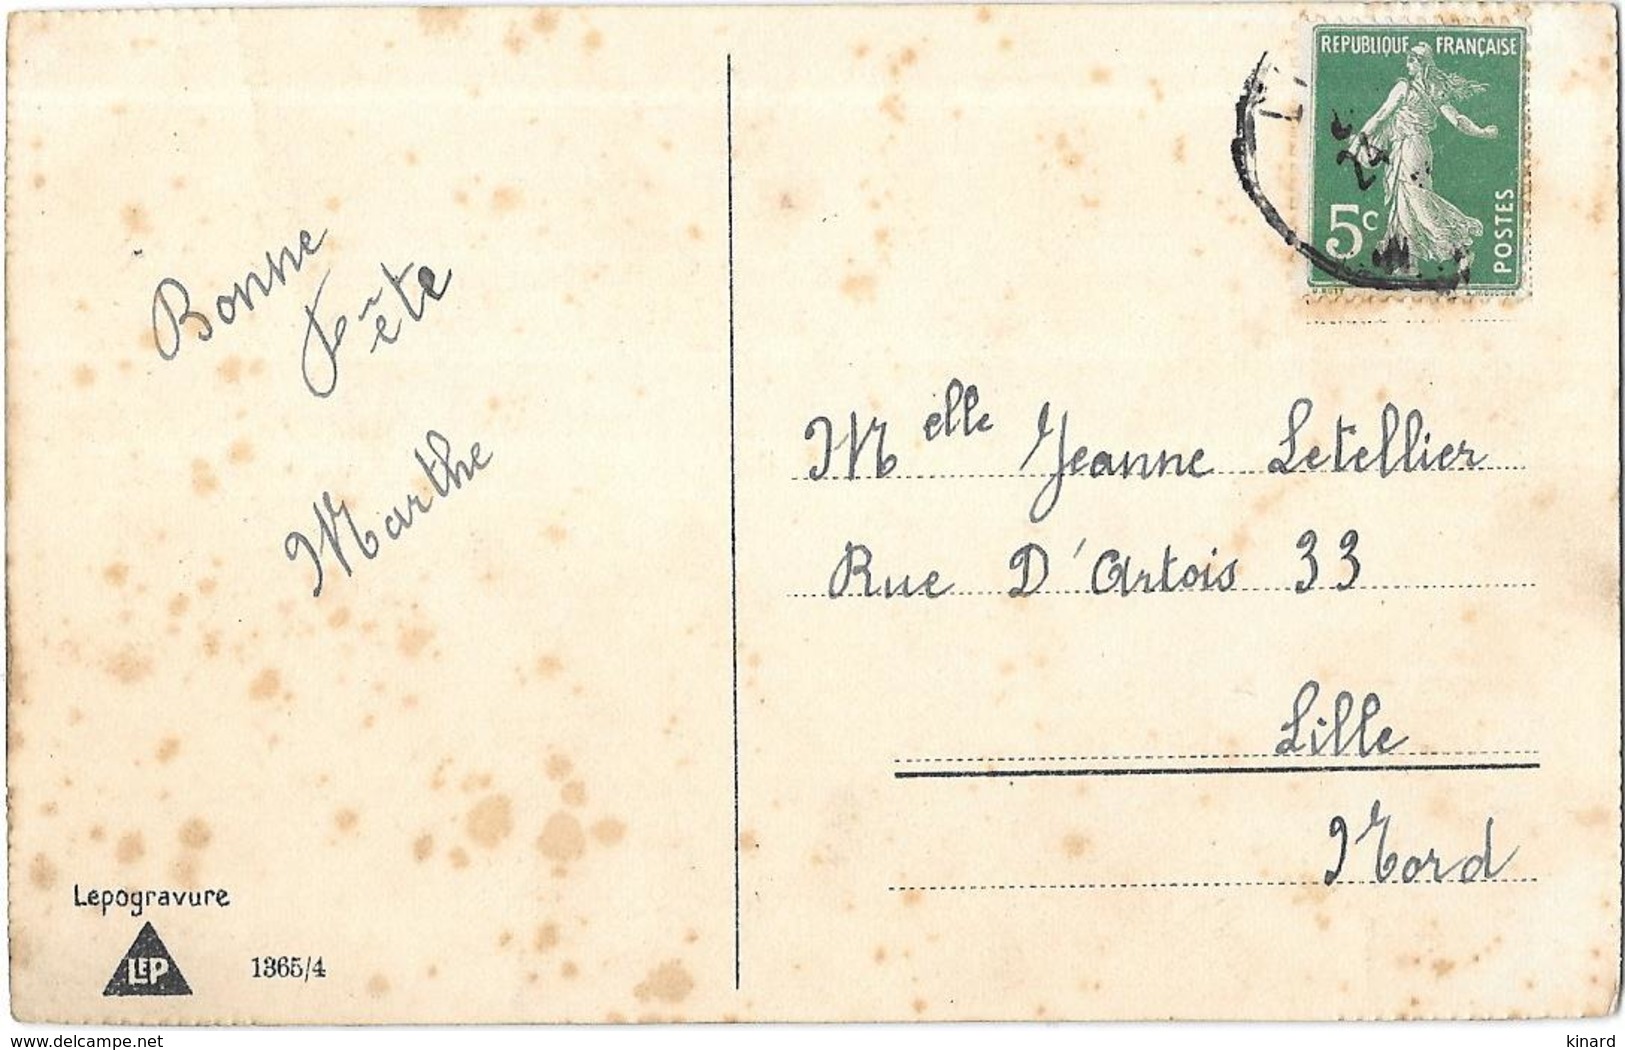 REPUBLIQUE FRANÇAISE
24
5c
POSTES
Bonne
fête
Marthe
Melle Jeanne Letellier
Rue D'Artois 33
Lille
Nord
Lepogravure
LEP
1365/4
delcampe.net
kinard